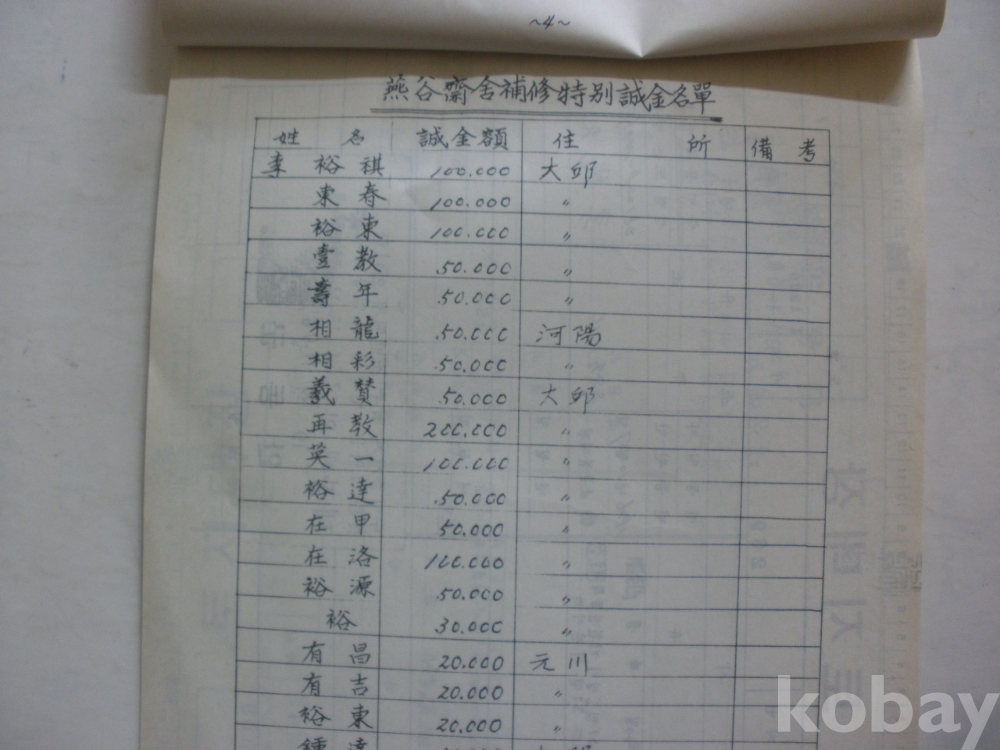 ~4~
燕谷齋舍補修特別誠金名單
姓 名 誠金額 住 所 備 考
李 裕 祺 100.000 大邱
東 春 100.000 〃
裕 東 100.000 〃
壹 教 50.000 〃
壽 年 50.000 〃
相 龍 50.000 河陽
相 彩 50.000 〃
羲 贊 50.000 大邱
再 教 200.000 〃
英 一 100.000 〃
裕 達 50.000 〃
在 甲 50.000 〃
在 洛 100.000 〃
裕 源 50.000 〃
裕 30.000 〃
有 昌 20.000 元川
有 吉 20.000 〃
裕 東 20.000 〃
鍾 達
kobay